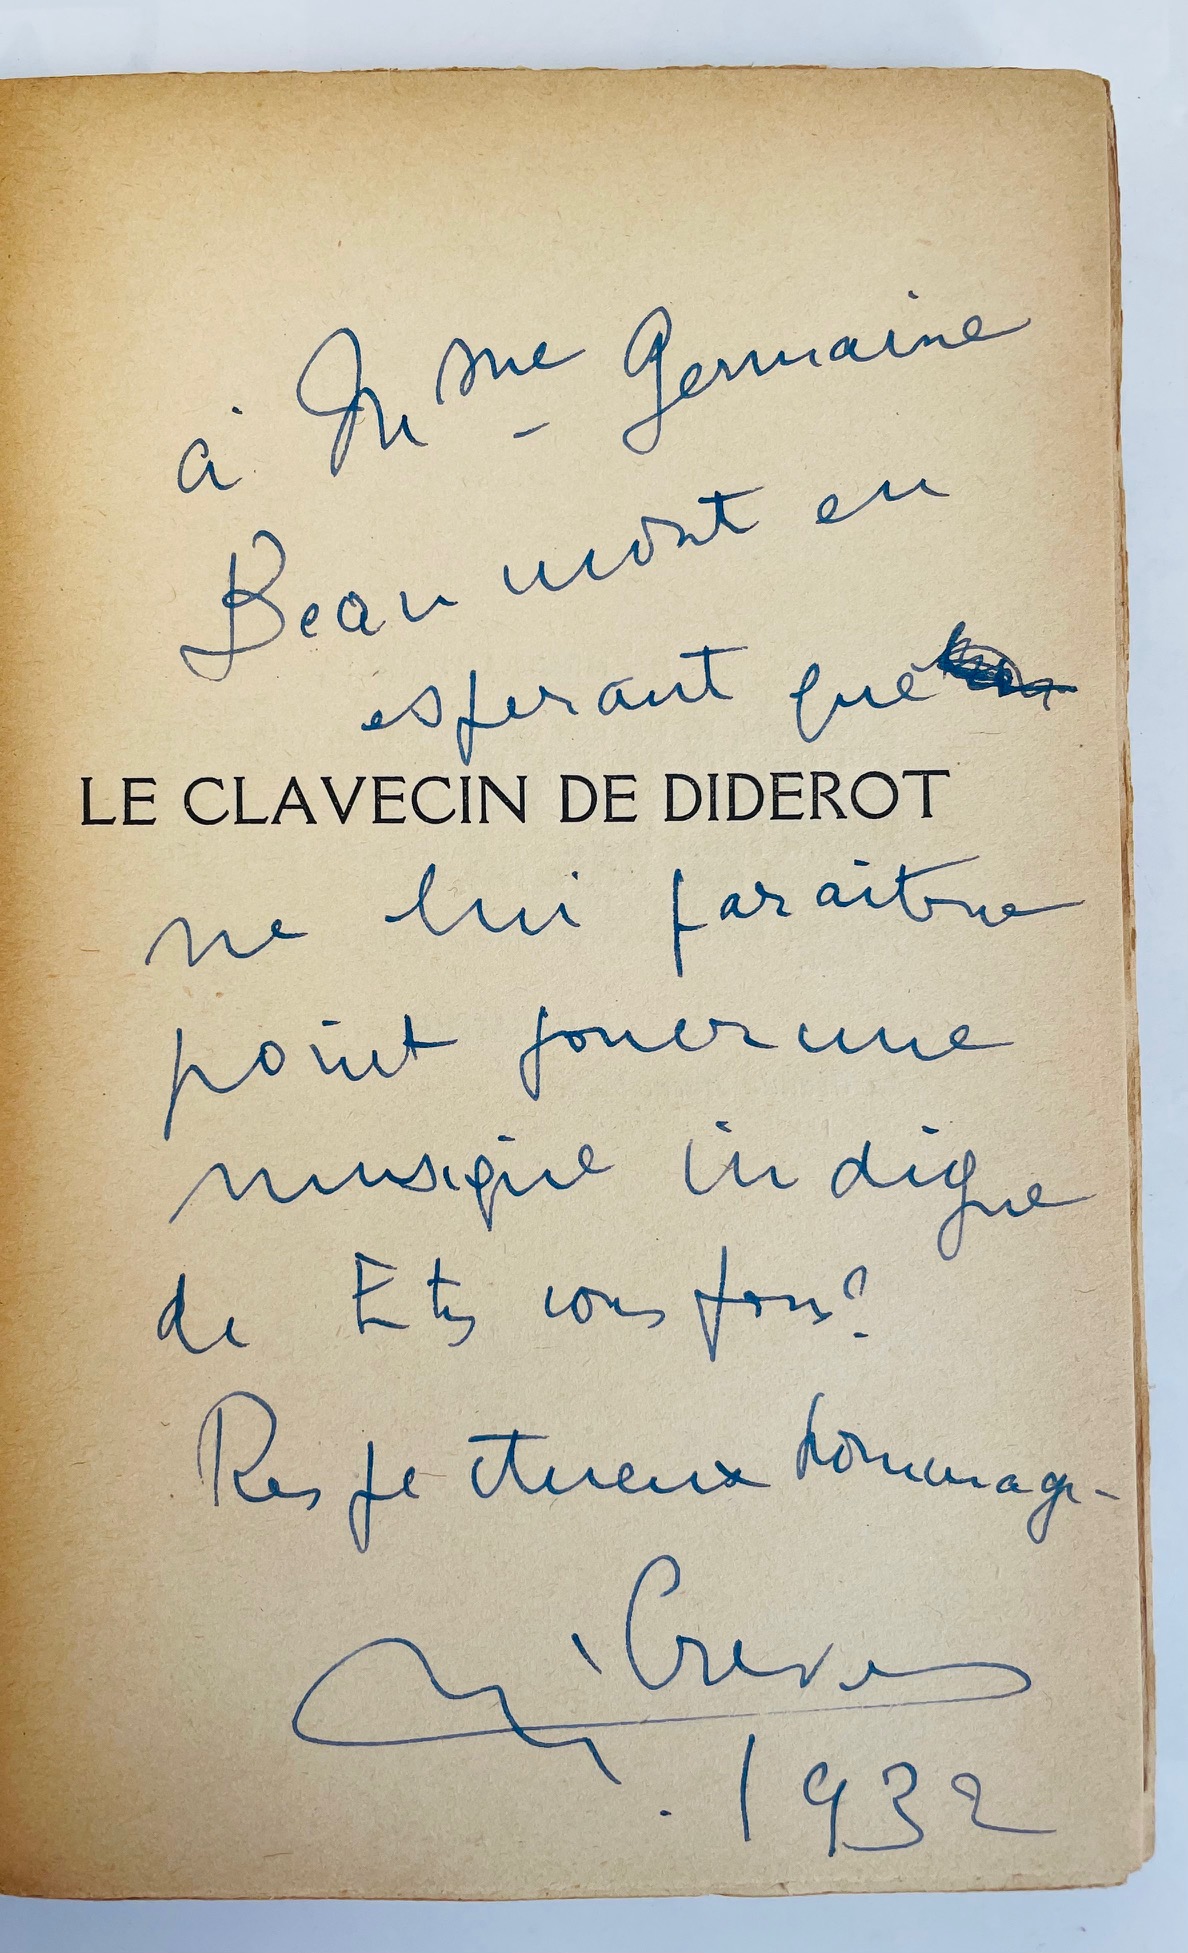 à Mme Germaine
Beaumont en
esperant que
LE CLAVECIN DE DIDEROT
ne lui paraitra
point jouer une
musique indigne
de Etes vous fous?
Respectueux hommage
Crevel
1932